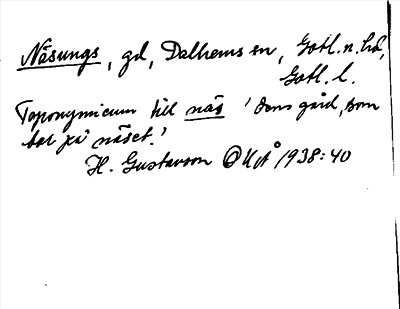 Näsungs, gd, Dalhems sn, Gotl. n. hd,
Gotl. l.
Toponymicum till näs 'dens gård, som
bor på näset.'
H. Gustavson OUÅ 1938:40